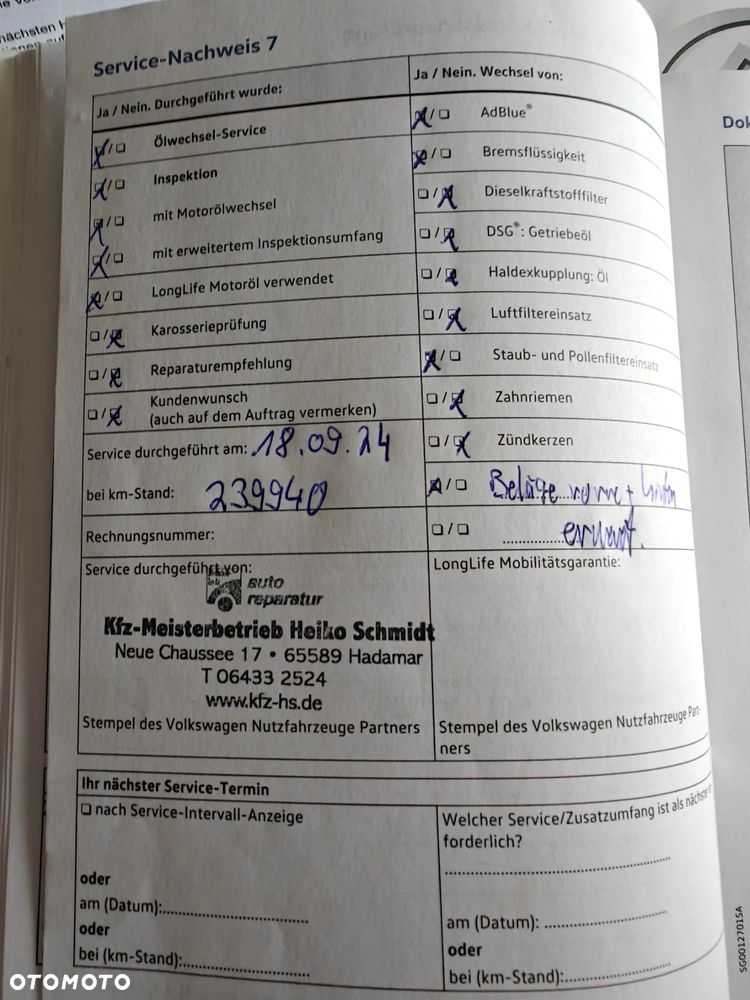 nächsten
Service-Nachweis 7
Ja / Nein. Durchgeführt wurde:
Ölwechsel-Service
Inspektion
mit Motorölwechsel
mit erweitertem Inspektionsumfang
LongLife Motoröl verwendet
Karosserieprüfung
Reparaturempfehlung
Kundenwunsch
(auch auf dem Auftrag vermerken)
Service durchgeführt am: 18.09.24
bei km-Stand: 239940
Rechnungsnummer:
Service durchgeführt von:
auto
reparatur
Kfz-Meisterbetrieb Heiko Schmidt
Neue Chaussee 17 • 65589 Hadamar
T 06433 2524
www.kfz-hs.de
Stempel des Volkswagen Nutzfahrzeuge Partners
Ja / Nein. Wechsel von:
AdBlue®
Bremsflüssigkeit
Dieselkraftstofffilter
DSG®: Getriebeöl
Haldexkupplung: Öl
Luftfiltereinsatz
Staub- und Pollenfiltereinsatz
Zahnriemen
Zündkerzen
Beläge vorne + hinten
erneuert.
LongLife Mobilitätsgarantie:
Stempel des Volkswagen Nutzfahrzeuge Part-
ners
Ihr nächster Service-Termin
nach Service-Intervall-Anzeige
oder
am (Datum):
oder
bei (km-Stand):
Welcher Service/Zusatzumfang ist als nächster er-
forderlich?
am (Datum):
oder
bei (km-Stand):
Dok
SG0012701SA
OTOMOTO